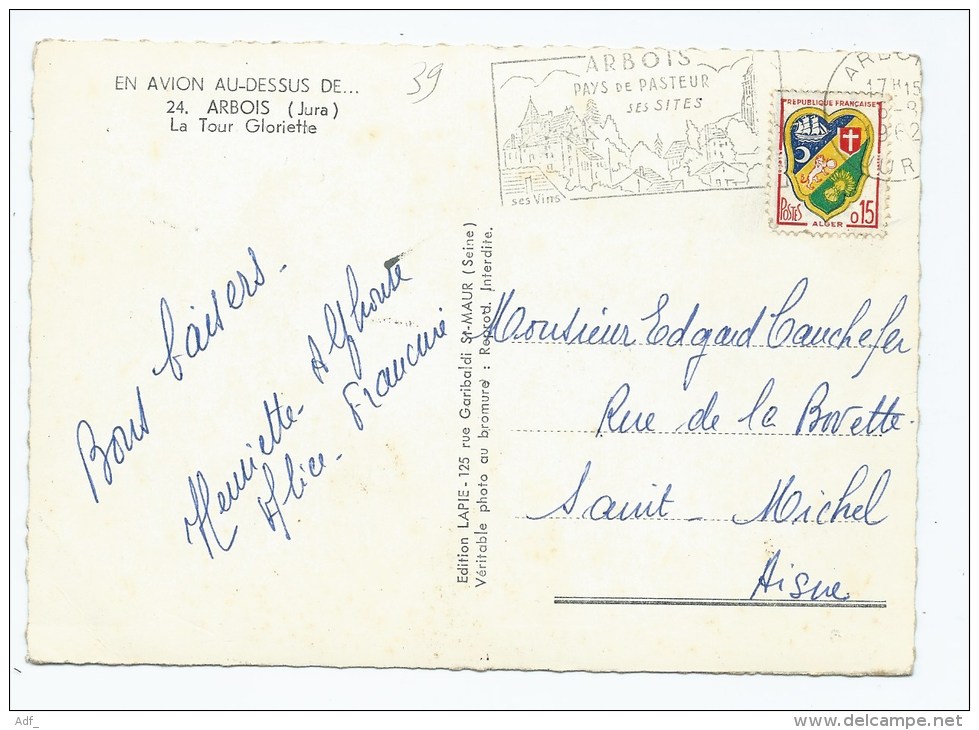 EN AVION AU-DESSUS DE...
24. ARBOIS (Jura)
La Tour Gloriette
39
ARBOIS
PAYS DE PASTEUR
SES SITES
ses Vins
17H15
REPUBLIQUE FRANÇAISE
POSTES
0.15
ALGER
Bons baisers.
Henriette. Alphonse
Alice. Francine
Edition LAPIE - 125 rue Garibaldi St-MAUR (Seine)
Véritable photo au bromure : Reprod. Interdite.
Monsieur Edgard Cauchefer
Rue de la Bovette.
Saint-Michel
Aisne
Adf_
delcampe.net